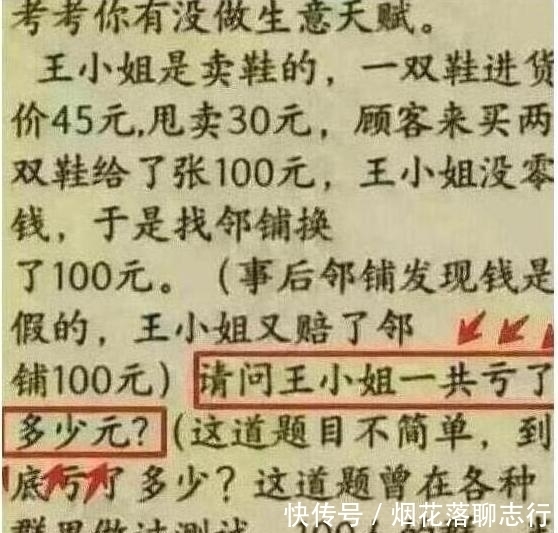 考考你有没做生意天赋。
王小姐是卖鞋的，一双鞋进货
价45元,甩卖30元，顾客来买两
双鞋给了张100元，王小姐没零
钱，于是找邻铺换
了100元。（事后邻铺发现钱是
假的，王小姐又赔了邻
铺100元）请问王小姐一共亏了
多少元？（这道题目不简单，到
底亏了多少？这道题曾在各种
快传号 / 烟花落聊志行